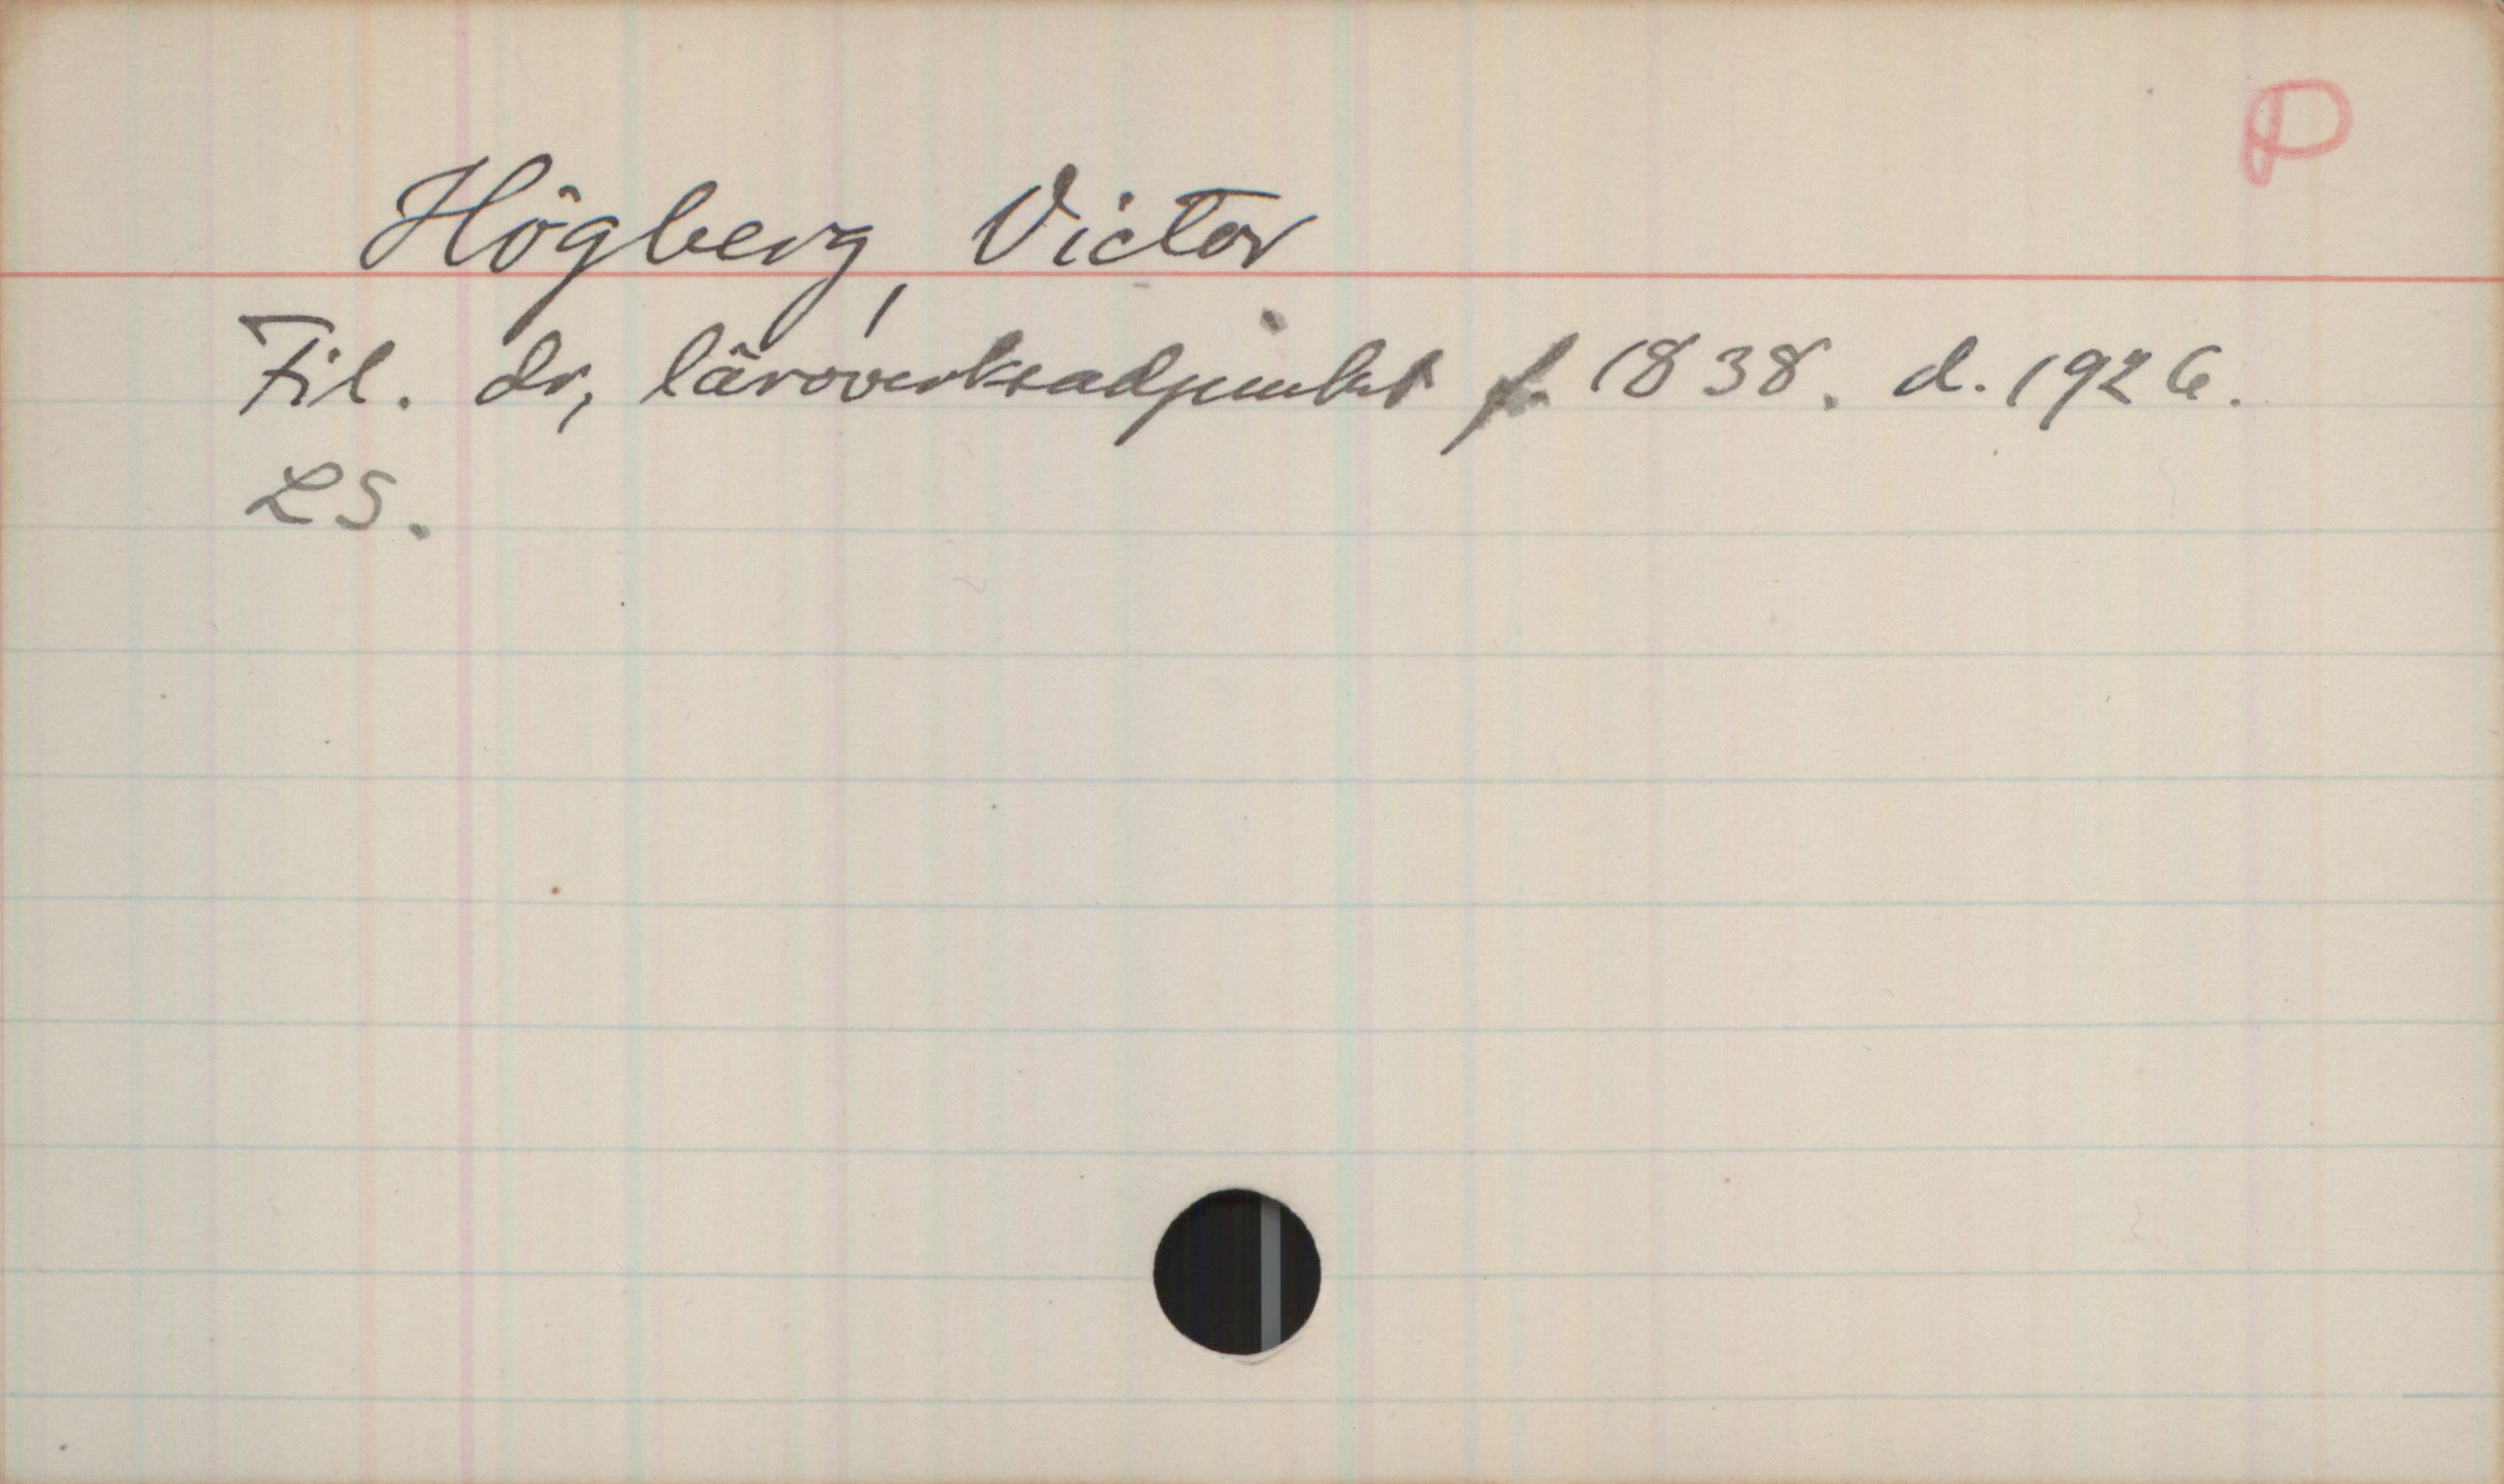 P
Högberg, Victor
Fil. dr, läroverksadjunkt f. 1838. d. 1926.
LS.